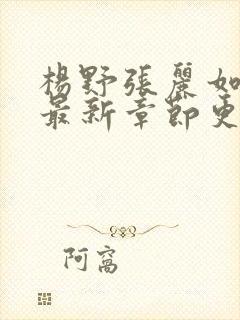 楊野張麗如
最新章節更
阿窩